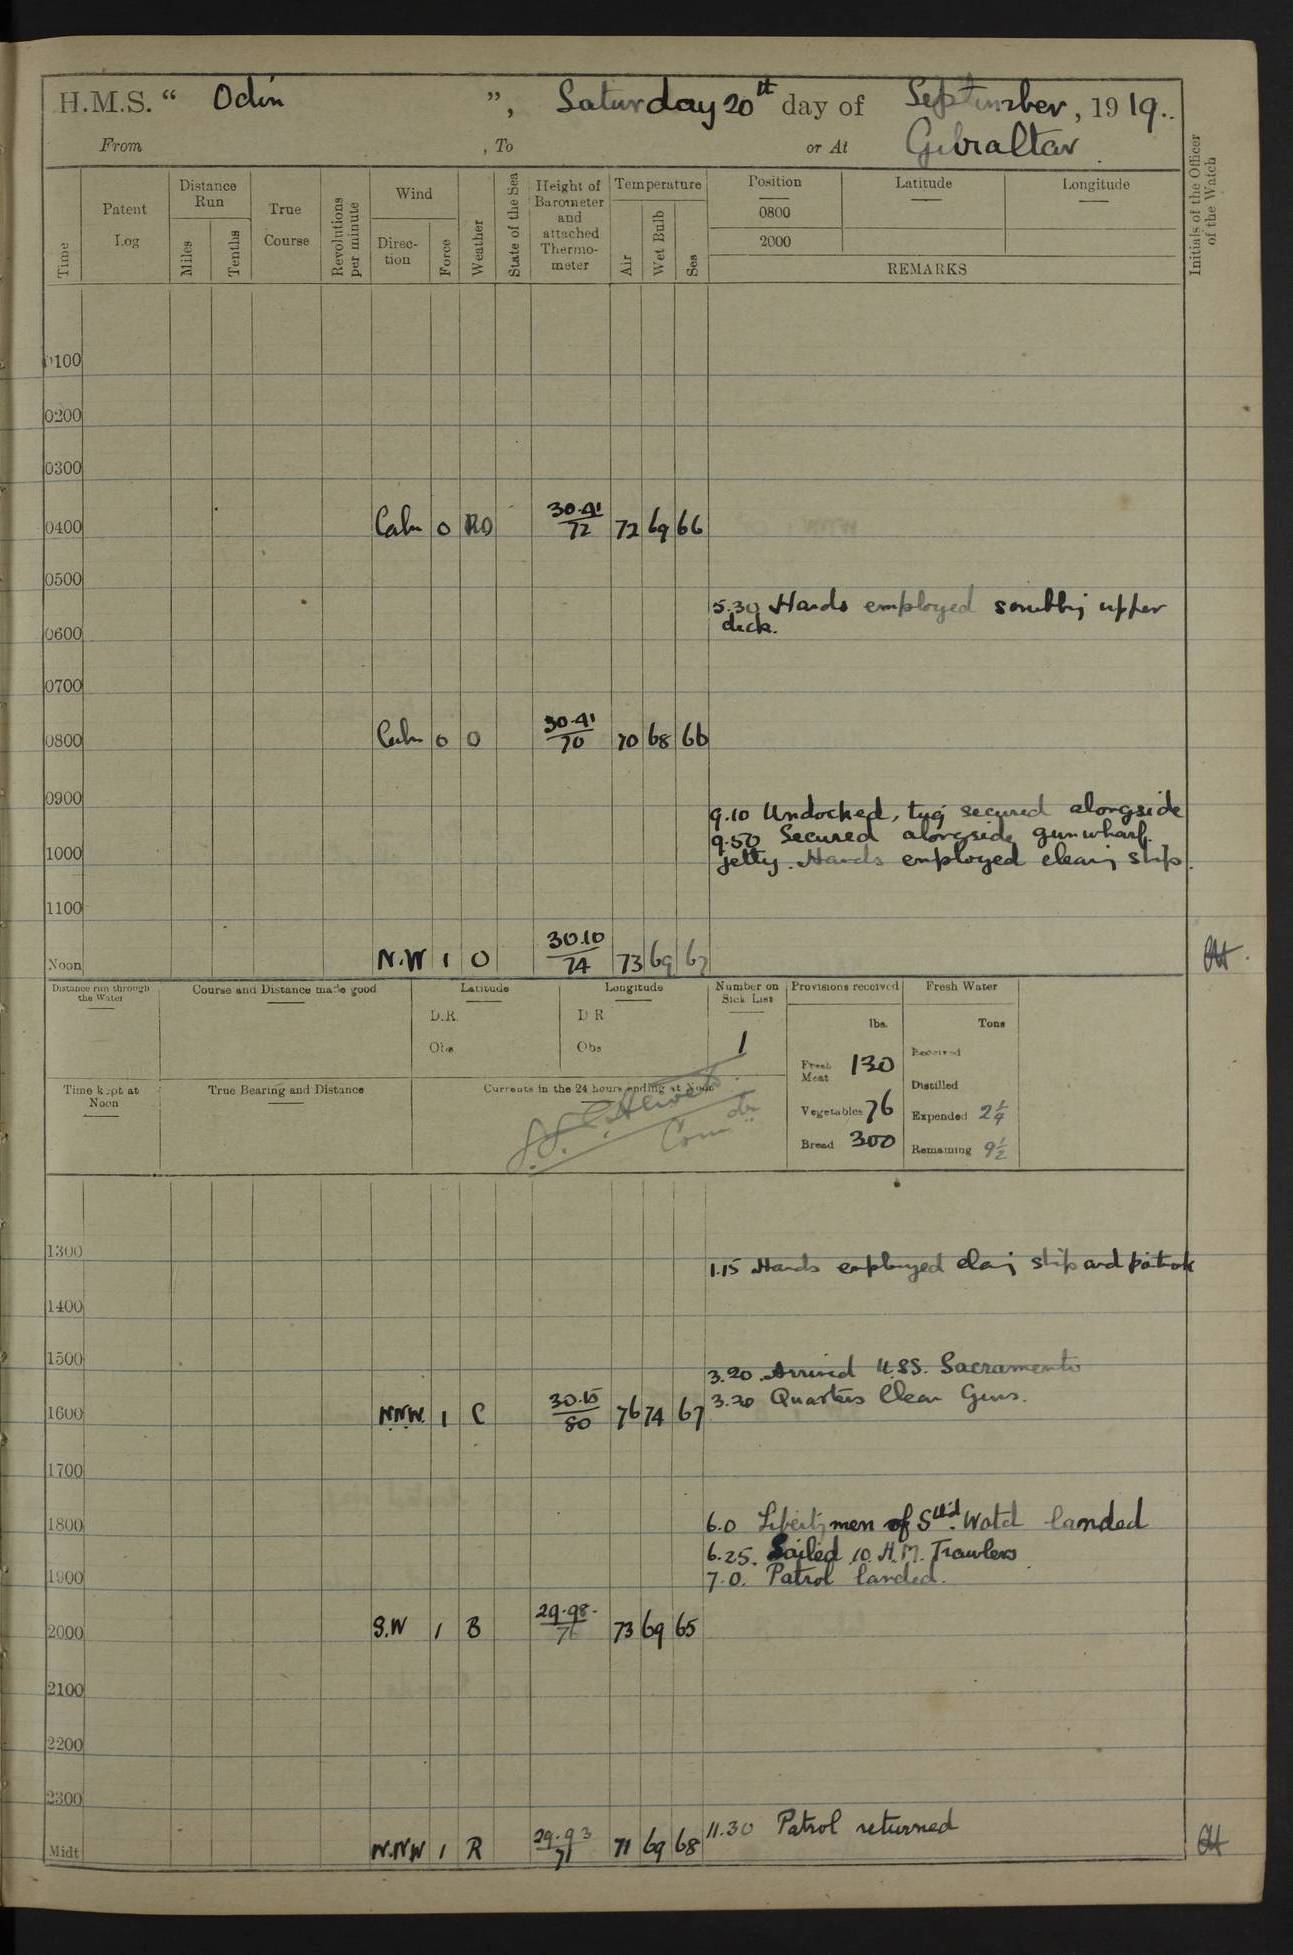 H.M.S. “ Odin ”, Saturday 20th day of September, 1919..
From , To or At Gibraltar
Time Patent Log Distance Run Miles Tenths True Course Revolutions per minute Wind Direc-tion Force Weather State of the Sea Height of Barometer and attached Thermo-meter Temperature Air Wet Bulb Sea Position 0800 2000 Latitude Longitude REMARKS Initials of the Officer of the Watch
0100
0200
0300
0400 Calm 0 RO 30.41/72 72 69 66
0500
5.30 Hands employed scrubbing upper
deck.
0600
0700
0800 Calm 0 O 30.41/70 70 68 66
0900
9.10 Undocked, tug secured alongside
9.50 Secured alongside gunwharf
1000
jetty. Hands employed cleaning ship.
1100
Noon N.W 1 O 30.10/74 73 69 67
Distance run through the Water Course and Distance made good Latitude Longitude Number on Sick List Provisions received Fresh Water
D.R. D R lbs. Tons
Obs Obs 1
Fresh Meat 130 Received
Time kept at Noon True Bearing and Distance Currents in the 24 hours ending at Noon
Distilled
Vegetables 76 Expended 2 1/4
Comdr
Bread 300 Remaining 9 1/2
1300
1.15 Hands employed cleaning ship and paintwork
1400
1500
3.20 Arrived U.S.S. Sacramento
3.30 Quarters Clean Guns.
1600 N.N.W. 1 C 30.15/80 76 74 67
1700
1800
6.0 Liberty men of Stbd Watch landed
6.25. Sailed 10 H.M. Trawlers
1900
7.0. Patrol landed.
2000 S.W 1 B 29.98/76 73 69 65
2100
2200
2300
11.30 Patrol returned
Midt N.NW 1 R 29.93/71 71 69 68